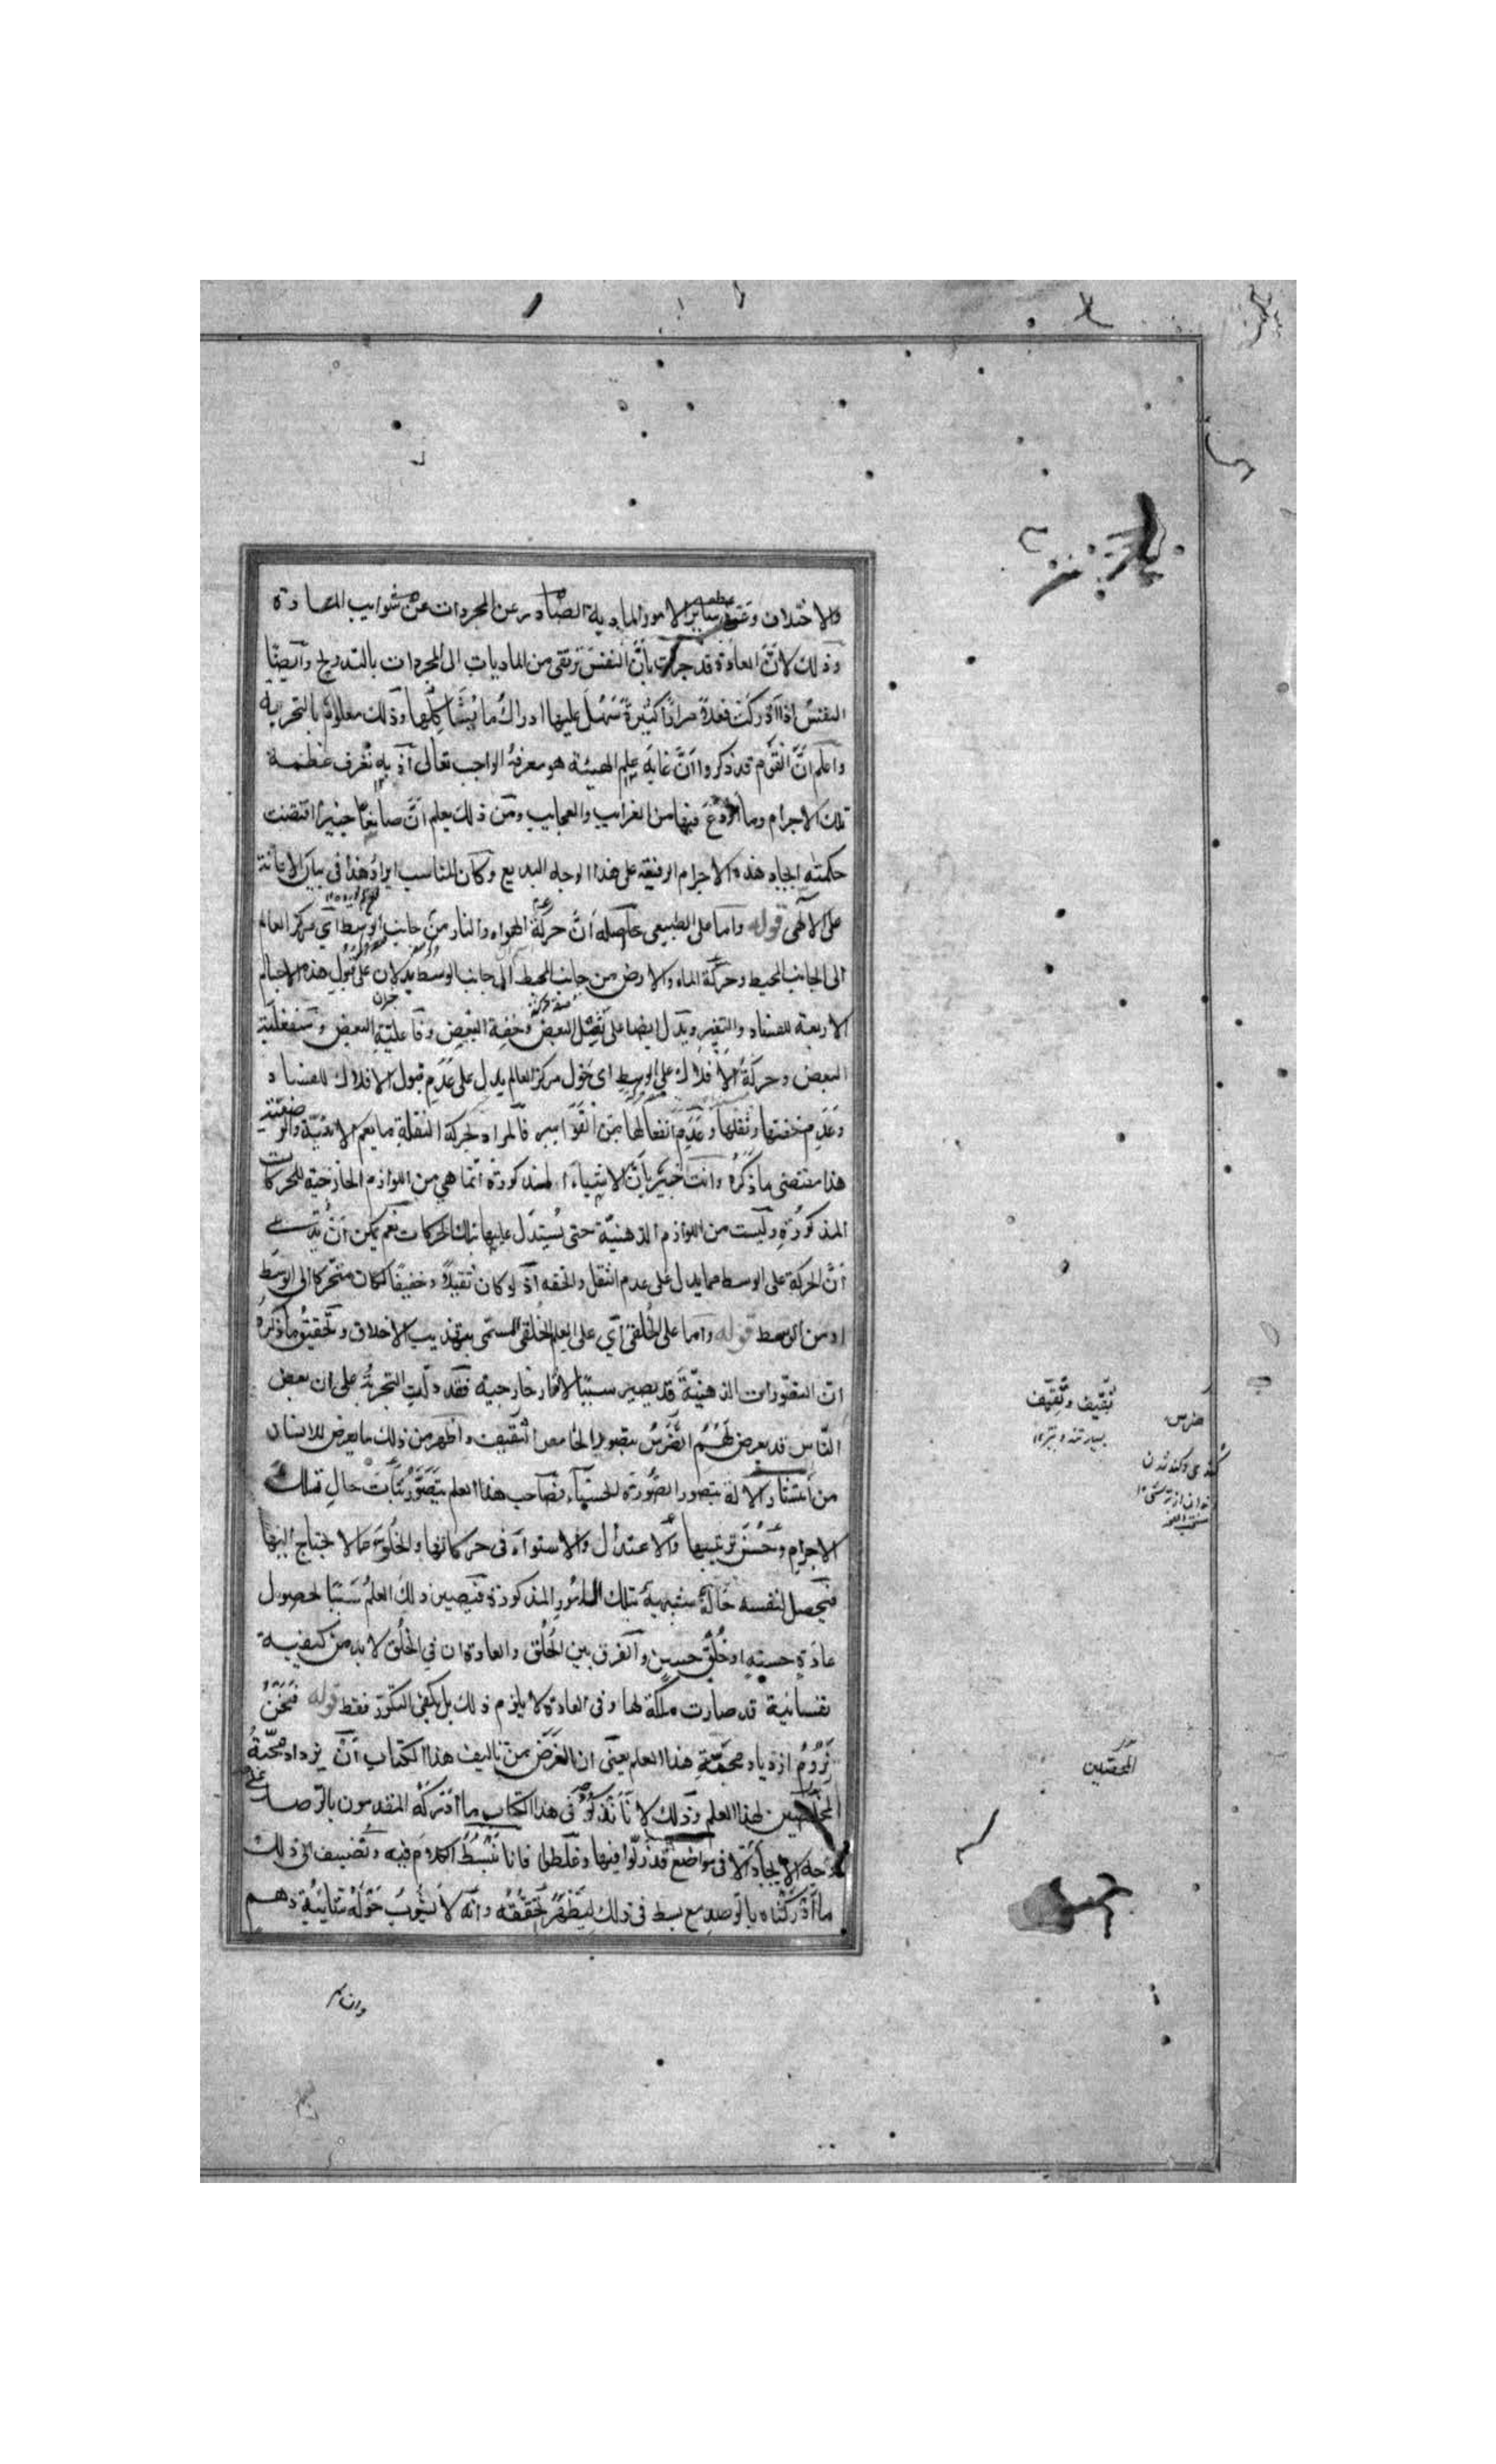 والاختلاف وعن سائر الامور المادية الصادر عن المجردات عن شوايب المضادة
وذلك لانّ العادة قد جرت بأنّ النفس ترتقى من الماديات الى المجردات بالتدريج وايضا
النفس اذا ادركت فعلاً مراراً كثيرةً سَهُلَ عليها ادراك ما يُشاكلها وذلك معلوم بالتجربه
واعلم انّ القوم قد ذكروا انّ غاية علم الهيئة هو معرفة الواجب تعالى اذ به تُعرف عظمة
تلك الاجرام وما اودع فيها من الغرايب والعجايب ومن ذلك يعلم انّ صانعاً خبيراً اقتضت
حكمته ايجاد هذه الاجرام الرفيعة على هذا الوجه البديع وكان المناسب ايراد هذا فى بيان الاعانة
على الآلهى قوله واما على الطبيعى حاصله أنّ حركة الهواء والنار من جانب الوسط اي مركز العالم
الى الجانب المحيط وحركة الماء والارض من جانب المحيط الى جانب الوسط يدلان على قبول هذه الاجسام
الاربعة للفساد والتغير ويدل ايضا على ثِقل البعض وخفة البعض وفاعلية البعض ومنفعلية
البعض وحركة الافلاك على الوسط اى حول مركز العالم يدل على عدم قبول الافلاك للفساد
وعدم خفتها وثقلها وعدم انفعالها من القواسر فالمراد بحركة النقلة ما يعم الاينية والوضعية
هذا مقتضى ما ذكره وانت خبير بانّ الاشياء المذكورة انما هي من اللوازم الخارجية للحركات
المذكورة وليست من اللوازم الذهنية حتى يُستدل عليها بتلك الحركات نعم يمكن انْ يدّعى
أنّ الحركة على الوسط مما يدل على عدم الثقل والخفه اذ لو كان ثقيلاً وخفيفا لكان متحركا الى الوسط
او من الوسط قوله واما على الخُلقى اي على العلم الخُلقى المسمى بتهذيب الاخلاق وتحقيق ما ذكره
انّ التصورات الذهنيّة قد يصير سببا لآثار خارجية فقد دلّت التجربة على ان بعض
النّاس قد يعرض لهم الضَّرَسُ بتصور الحامض الثقيف واظهر من ذلك ما يعرض للانسان
من انتشار الآلة بتصور الصُّورَة الحسناء فصاحب هذا العلم يتصوّر ثبات حال تلك
الاجرام وحُسْنَ ترتيبها والاعتدال والاستواء فى حركاتها والخُلُوّ عما لا يحتاج اليها
فيحصل لنفسه حالة شبيهة بتلك الامور المذكورة فيصير ذلك العلم سببا لحصول
عادة حسنه او خُلُقٍ حسن والفرق بين الخُلق والعادة ان في الخُلق لا بد من كيفية
نفسانية قد صارت ملكة لها وفى العادة لا يلزم ذلك بل يكفى التكرّر فقط قوله فنحن
نَرُومُ ازدياد محبّة هذا العلم يعنى ان الغرض من تاليف هذا الكتاب انْ يزداد محبّةُ
المخلصين لهذا العلم وذلك لانّا نذكر فى هذا الكتاب ما ادركه المتقدمون بالرّصد على
وجه الايجاز الّا فى مواضع قد زلّوا فيها وغلطوا فانا نبسُطُ الكلام فيه ونُضيف الى ذلك
ما ادركناه بالرّصد مع بسط فى ذلك ليظهرَ تحققه وانه لا يَشُوبُ حَوْلَهُ شايبة وهم
ثقيف وثِقّيف
بسيار تند وتيز
ضرس
كند شدن
دندان از ترشى
المحصلين
وان لم